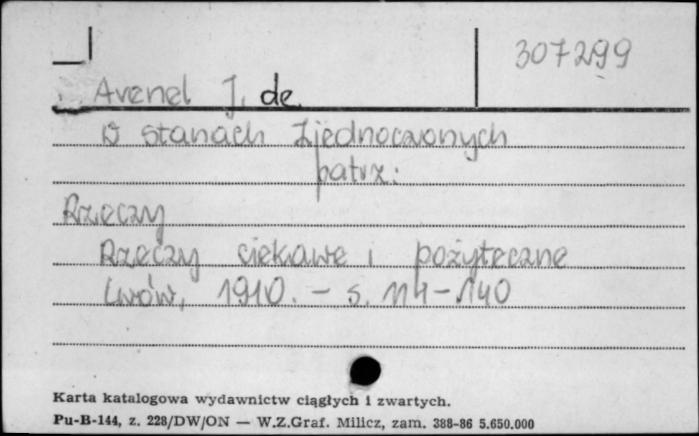 307299
Avenel J. de
W stanach Zjednoczonych
patrz:
Rzeczy
Rzeczy ciekawe i pożyteczne
Lwów, 1910. - s. 114-140
Karta katalogowa wydawnictw ciągłych i zwartych.
Pu-B-144, z. 228/DW/ON — W.Z.Graf. Milicz, zam. 388-86 5.650.000